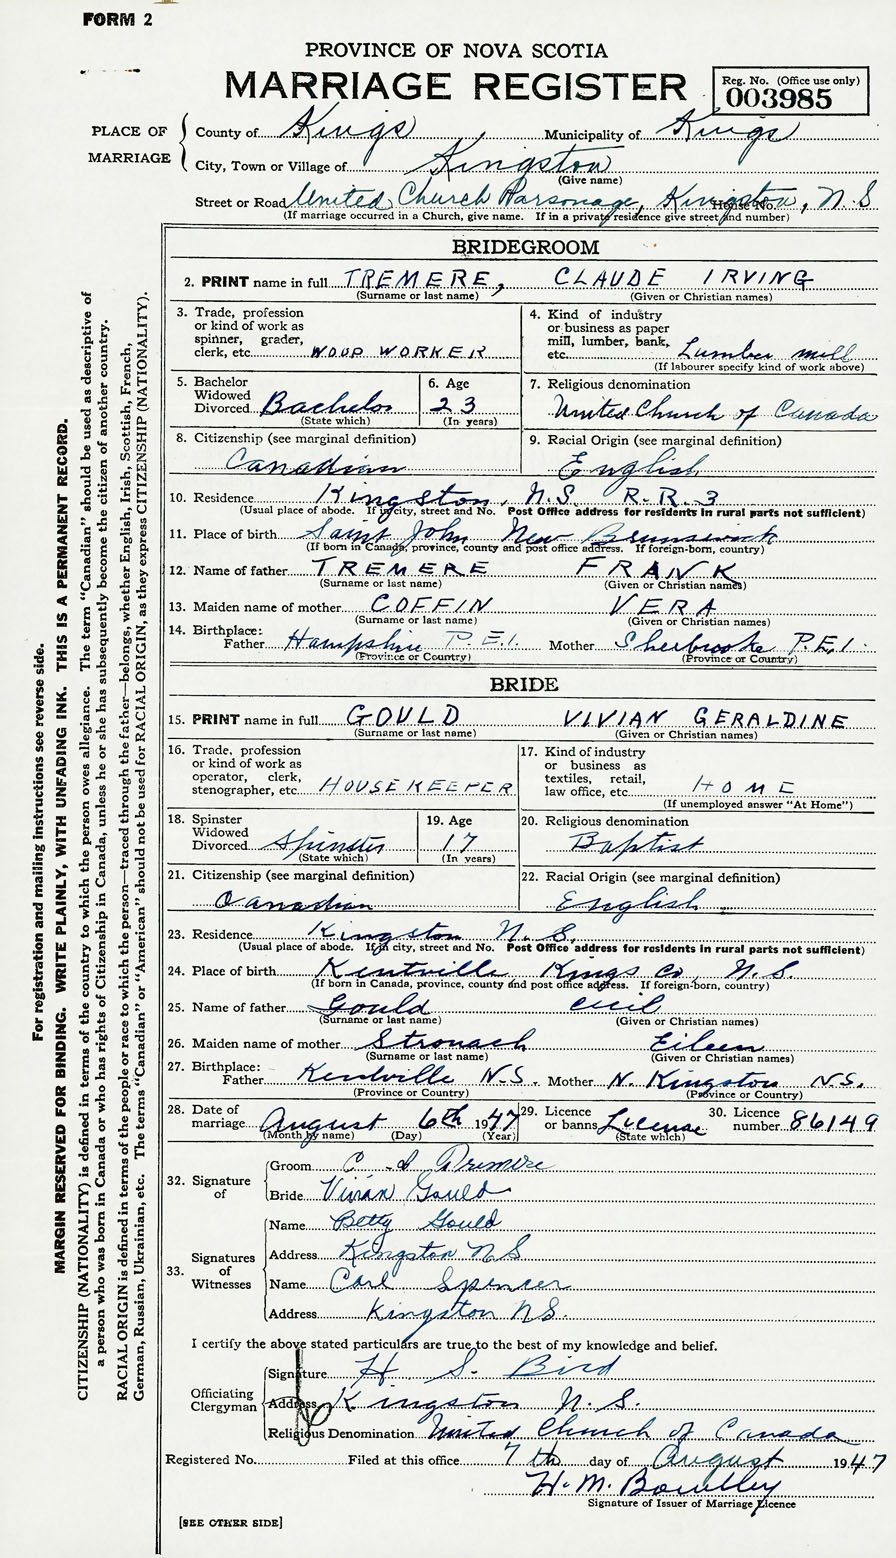 FORM 2
PROVINCE OF NOVA SCOTIA
MARRIAGE REGISTER
Reg. No. (Office use only)
003985
PLACE OF MARRIAGE
County of Kings Municipality of Kings
City, Town or Village of Kingston
(Give name)
Street or Road United Church Parsonage, Kingston, N.S House No.
(If marriage occurred in a Church, give name. If in a private residence give street and number)
BRIDEGROOM
2. PRINT name in full TREMERE, CLAUDE IRVING
(Surname or last name) (Given or Christian names)
3. Trade, profession or kind of work as spinner, grader, clerk, etc. WOUP WORKER
4. Kind of industry or business as paper mill, lumber, bank, etc. Lumber mill
(If labourer specify kind of work above)
5. Bachelor Widowed Divorced Bachelor
(State which)
6. Age 23
(In years)
7. Religious denomination
United Church of Canada
8. Citizenship (see marginal definition)
Canadian
9. Racial Origin (see marginal definition)
English
10. Residence Kingston, N.S. R.R. 3
(Usual place of abode. If in city, street and No. Post Office address for residents in rural parts not sufficient)
11. Place of birth Saint John New Brunswick
(If born in Canada, province, county and post office address. If foreign-born, country)
12. Name of father TREMERE FRANK
(Surname or last name) (Given or Christian names)
13. Maiden name of mother COFFIN VERA
(Surname or last name) (Given or Christian names)
14. Birthplace: Father Hampshire P.E.I. Mother Sherbrooke P.E.I.
(Province or Country) (Province or Country)
BRIDE
15. PRINT name in full GOULD VIVIAN GERALDINE
(Surname or last name) (Given or Christian names)
16. Trade, profession or kind of work as operator, clerk, stenographer, etc. HOUSEKEEPER
17. Kind of industry or business as textiles, retail, law office, etc. HOME
(If unemployed answer "At Home")
18. Spinster Widowed Divorced Spinster
(State which)
19. Age 17
(In years)
20. Religious denomination
Baptist
21. Citizenship (see marginal definition)
Canadian
22. Racial Origin (see marginal definition)
English
23. Residence Kingston N.S.
(Usual place of abode. If in city, street and No. Post Office address for residents in rural parts not sufficient)
24. Place of birth Kentville Kings Co, N.S.
(If born in Canada, province, county and post office address. If foreign-born, country)
25. Name of father Gould Cecil
(Surname or last name) (Given or Christian names)
26. Maiden name of mother Stronach Eileen
(Surname or last name) (Given or Christian names)
27. Birthplace: Father Kentville N.S. Mother N. Kingston N.S.
(Province or Country) (Province or Country)
28. Date of marriage August 6th 1947
(Month by name) (Day) (Year)
29. Licence or banns License
(State which)
30. Licence number 86149
32. Signature of
Groom C. I. Tremere
Bride Vivian Gould
33. Signatures of Witnesses
Name Betty Gould
Address Kingston N S
Name Carl Spencer
Address Kingston N.S.
I certify the above stated particulars are true to the best of my knowledge and belief.
Officiating Clergyman
Signature H. S. Bird
Address Kingston N.S.
Religious Denomination United Church of Canada
Registered No. Filed at this office 7th day of August 1947
H. M.
Signature of Issuer of Marriage Licence
[SEE OTHER SIDE]
For registration and mailing instructions see reverse side.
MARGIN RESERVED FOR BINDING. WRITE PLAINLY, WITH UNFADING INK. THIS IS A PERMANENT RECORD.
CITIZENSHIP (NATIONALITY) is defined in terms of the country to which the person owes allegiance. The term "Canadian" should be used as descriptive of
a person who was born in Canada or who has rights of Citizenship in Canada, unless he or she has subsequently become the citizen of another country.
RACIAL ORIGIN is defined in terms of the people or race to which the person—traced through the father—belongs, whether English, Irish, Scottish, French,
German, Russian, Ukrainian, etc. The terms "Canadian" or "American" should not be used for RACIAL ORIGIN, as they express CITIZENSHIP (NATIONALITY).